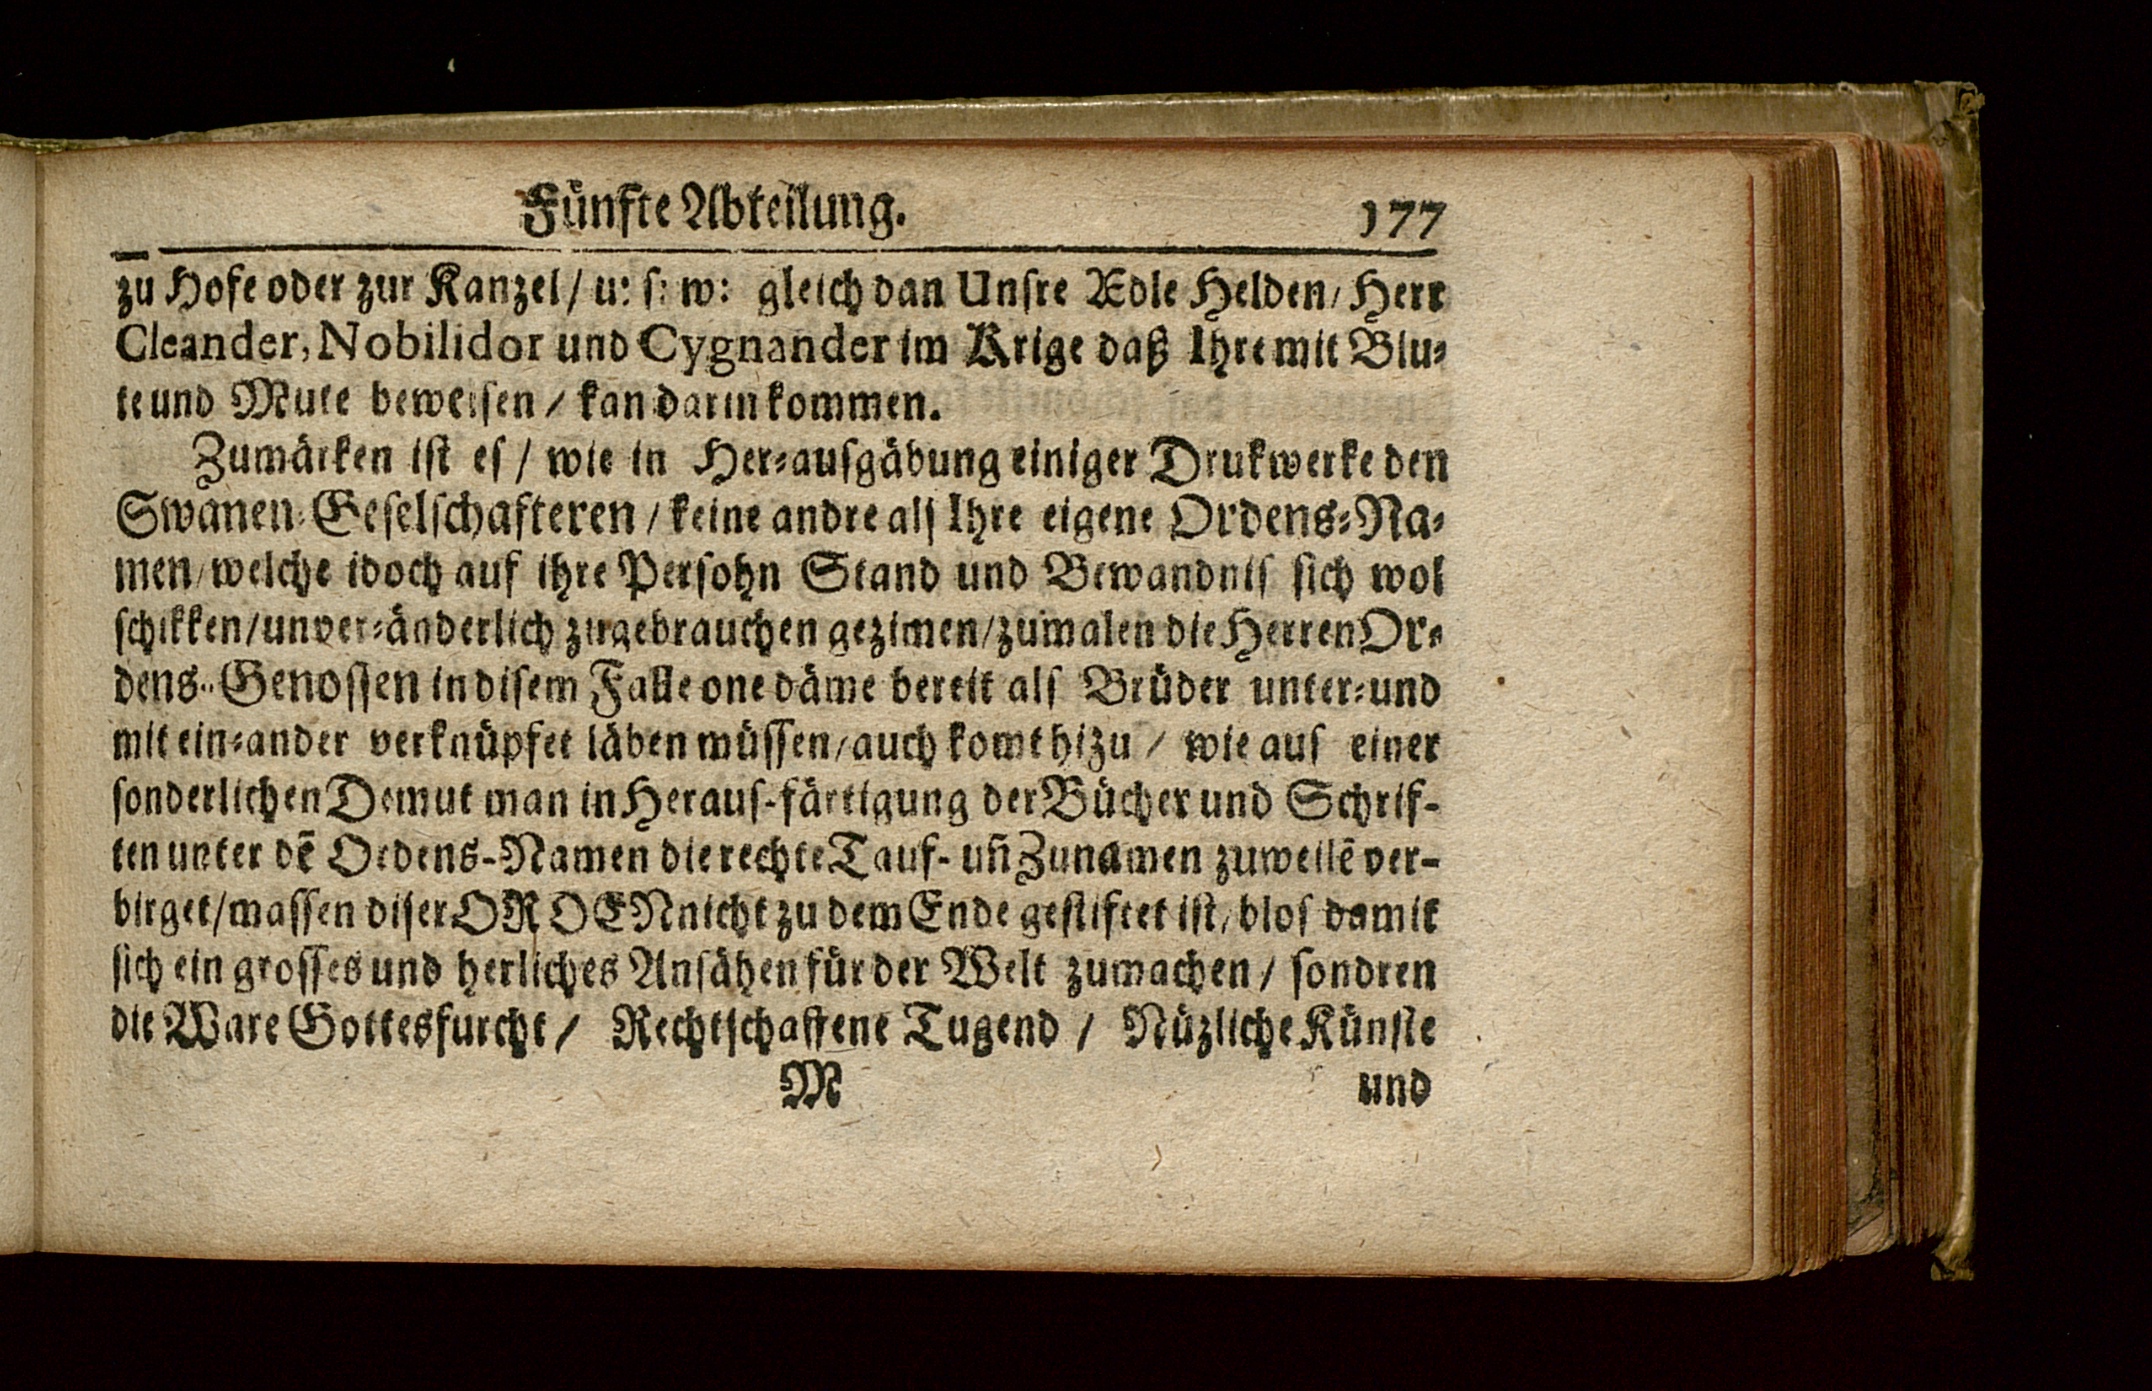 Fünfte Abteilung. 177
zu Hofe oder zur Kanzel / u: ſ: w: gleich dan Unſre Ædle Helden / Herr
Cleander, Nobilidor und Cygnander im Krige daß Ihre mit Blu⸗
te und Mute beweiſen / kan darin kommen.
Zumärken iſt eſ / wie in Her⸗auſgäbung einiger Drukwerke den
Swanen⸗Geſelſchafteren / keine andre alſ Ihre eigene Ordens⸗Na⸗
men / welche idoch auf ihre Perſohn Stand und Bewandniſ ſich wol
ſchikken / unver⸗änderlich zugebrauchen gezimen / zumalen die Herren Or⸗
dens⸗Genoſſen in diſem Falle one däme bereit alſ Brüder unter⸗und
mit ein⸗ander verknüpfet läben müſſen / auch komt hizu / wie auſ einer
ſonderlichen Demut man in Herauſ-färtigung der Bücher und Schrif-
ten unter dē Ordens-Namen die rechte Tauf- uñ Zunamen zuweilē ver-
birget / maſſen diſer ORDEN nicht zu dem Ende geſtiftet iſt / bloſ damit
ſich ein groſſes und herliches Anſähen für der Welt zumachen / ſondren
die Ware Gottesfurcht / Rechtſchaffene Tugend / Nüzliche Künſte
M und